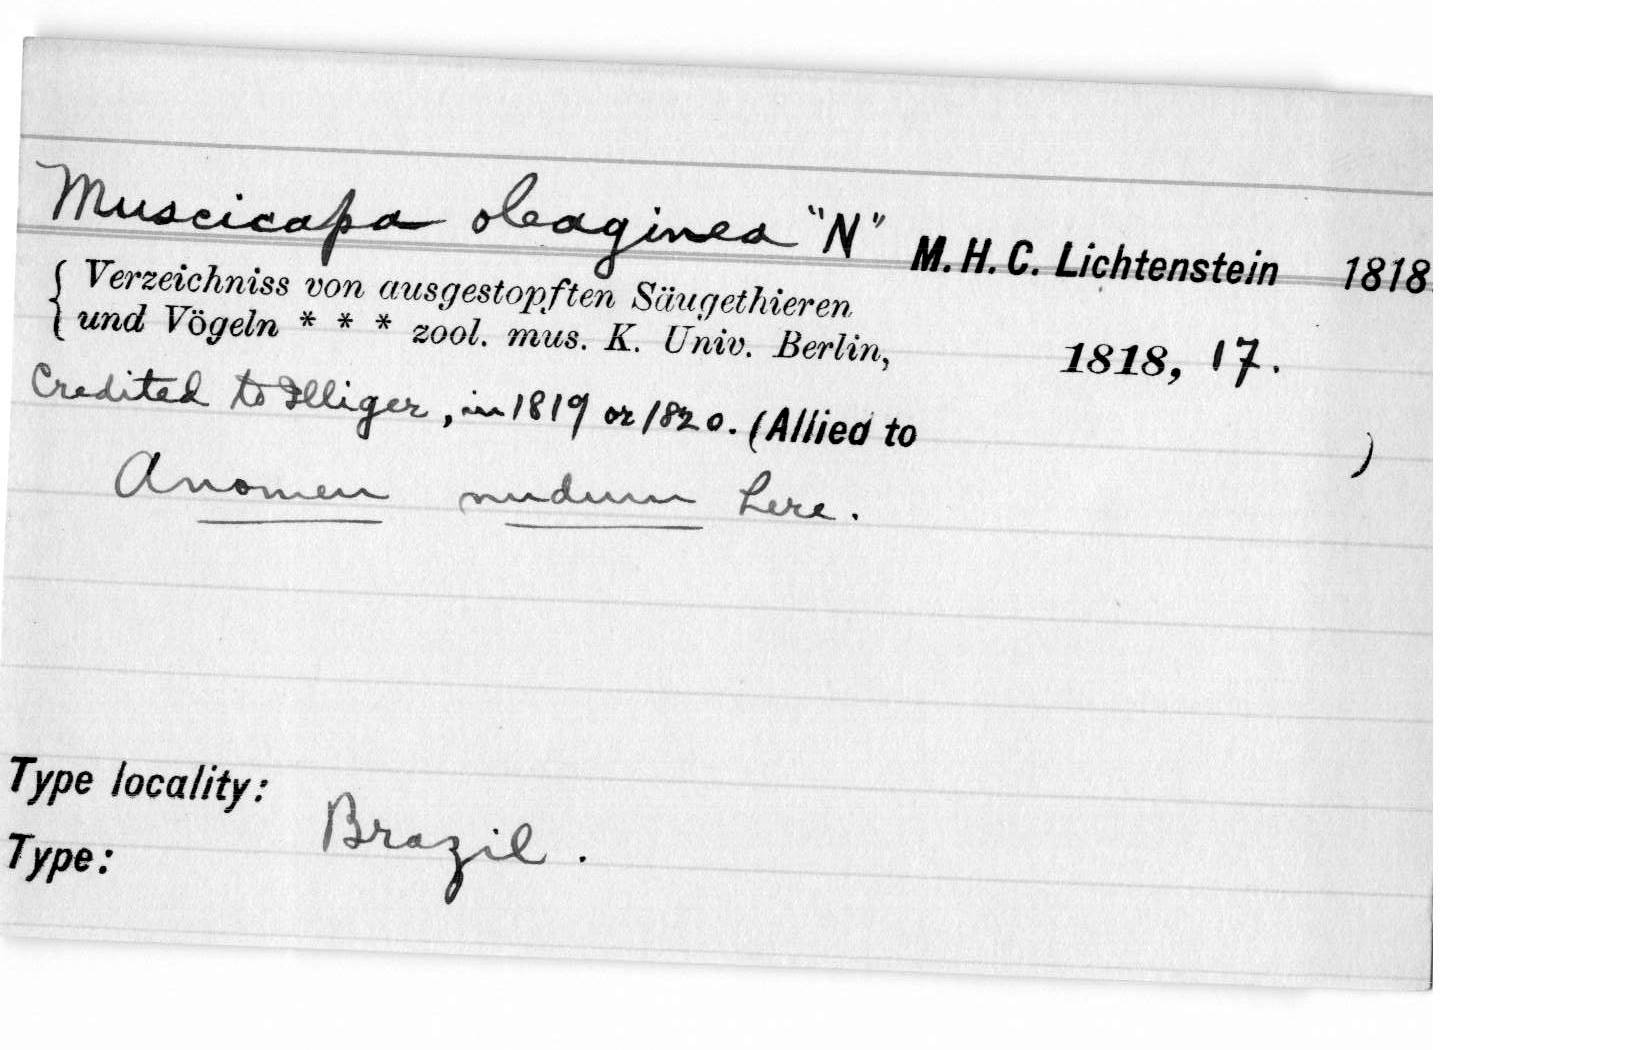 Muscicapa oleaginea "N" M. H. C. Lichtenstein 1818
{ Verzeichniss von ausgestopften Säugethieren
und Vögeln * * * zool. mus. K. Univ. Berlin, 1818, 17.
Credited to Illiger, in 1819 or 1820. (Allied to )
A nomen nudum here.
Type locality:
Brazil.
Type: